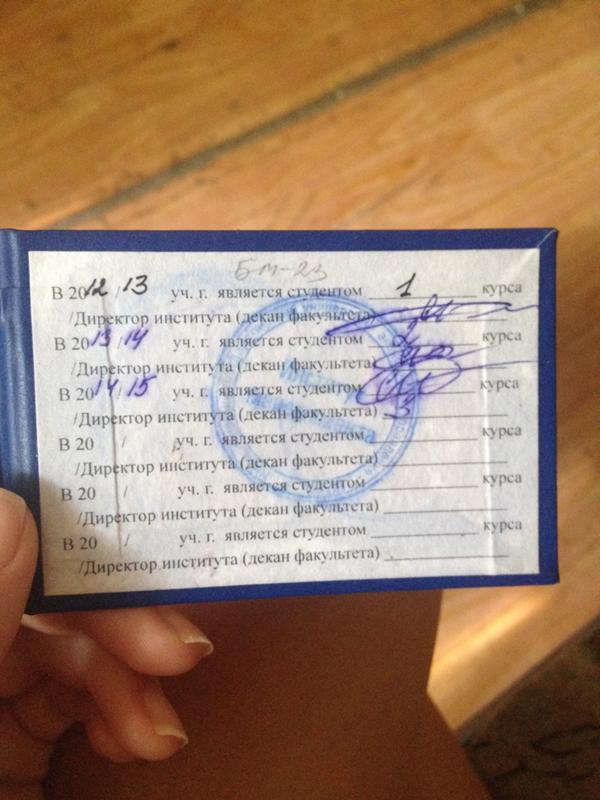 БМ-23
В 2012/13 уч. г. является студентом 1 курса
/Директор института (декан факультета)
В 2013/14 уч. г. является студентом 2 курса
/Директор института (декан факультета)
В 2014/15 уч. г. является студентом курса
/Директор института (декан факультета) 3
В 20 / уч. г. является студентом курса
/Директор института (декан факультета)
В 20 / уч. г. является студентом курса
/Директор института (декан факультета)
В 20 / уч. г. является студентом курса
/Директор института (декан факультета)